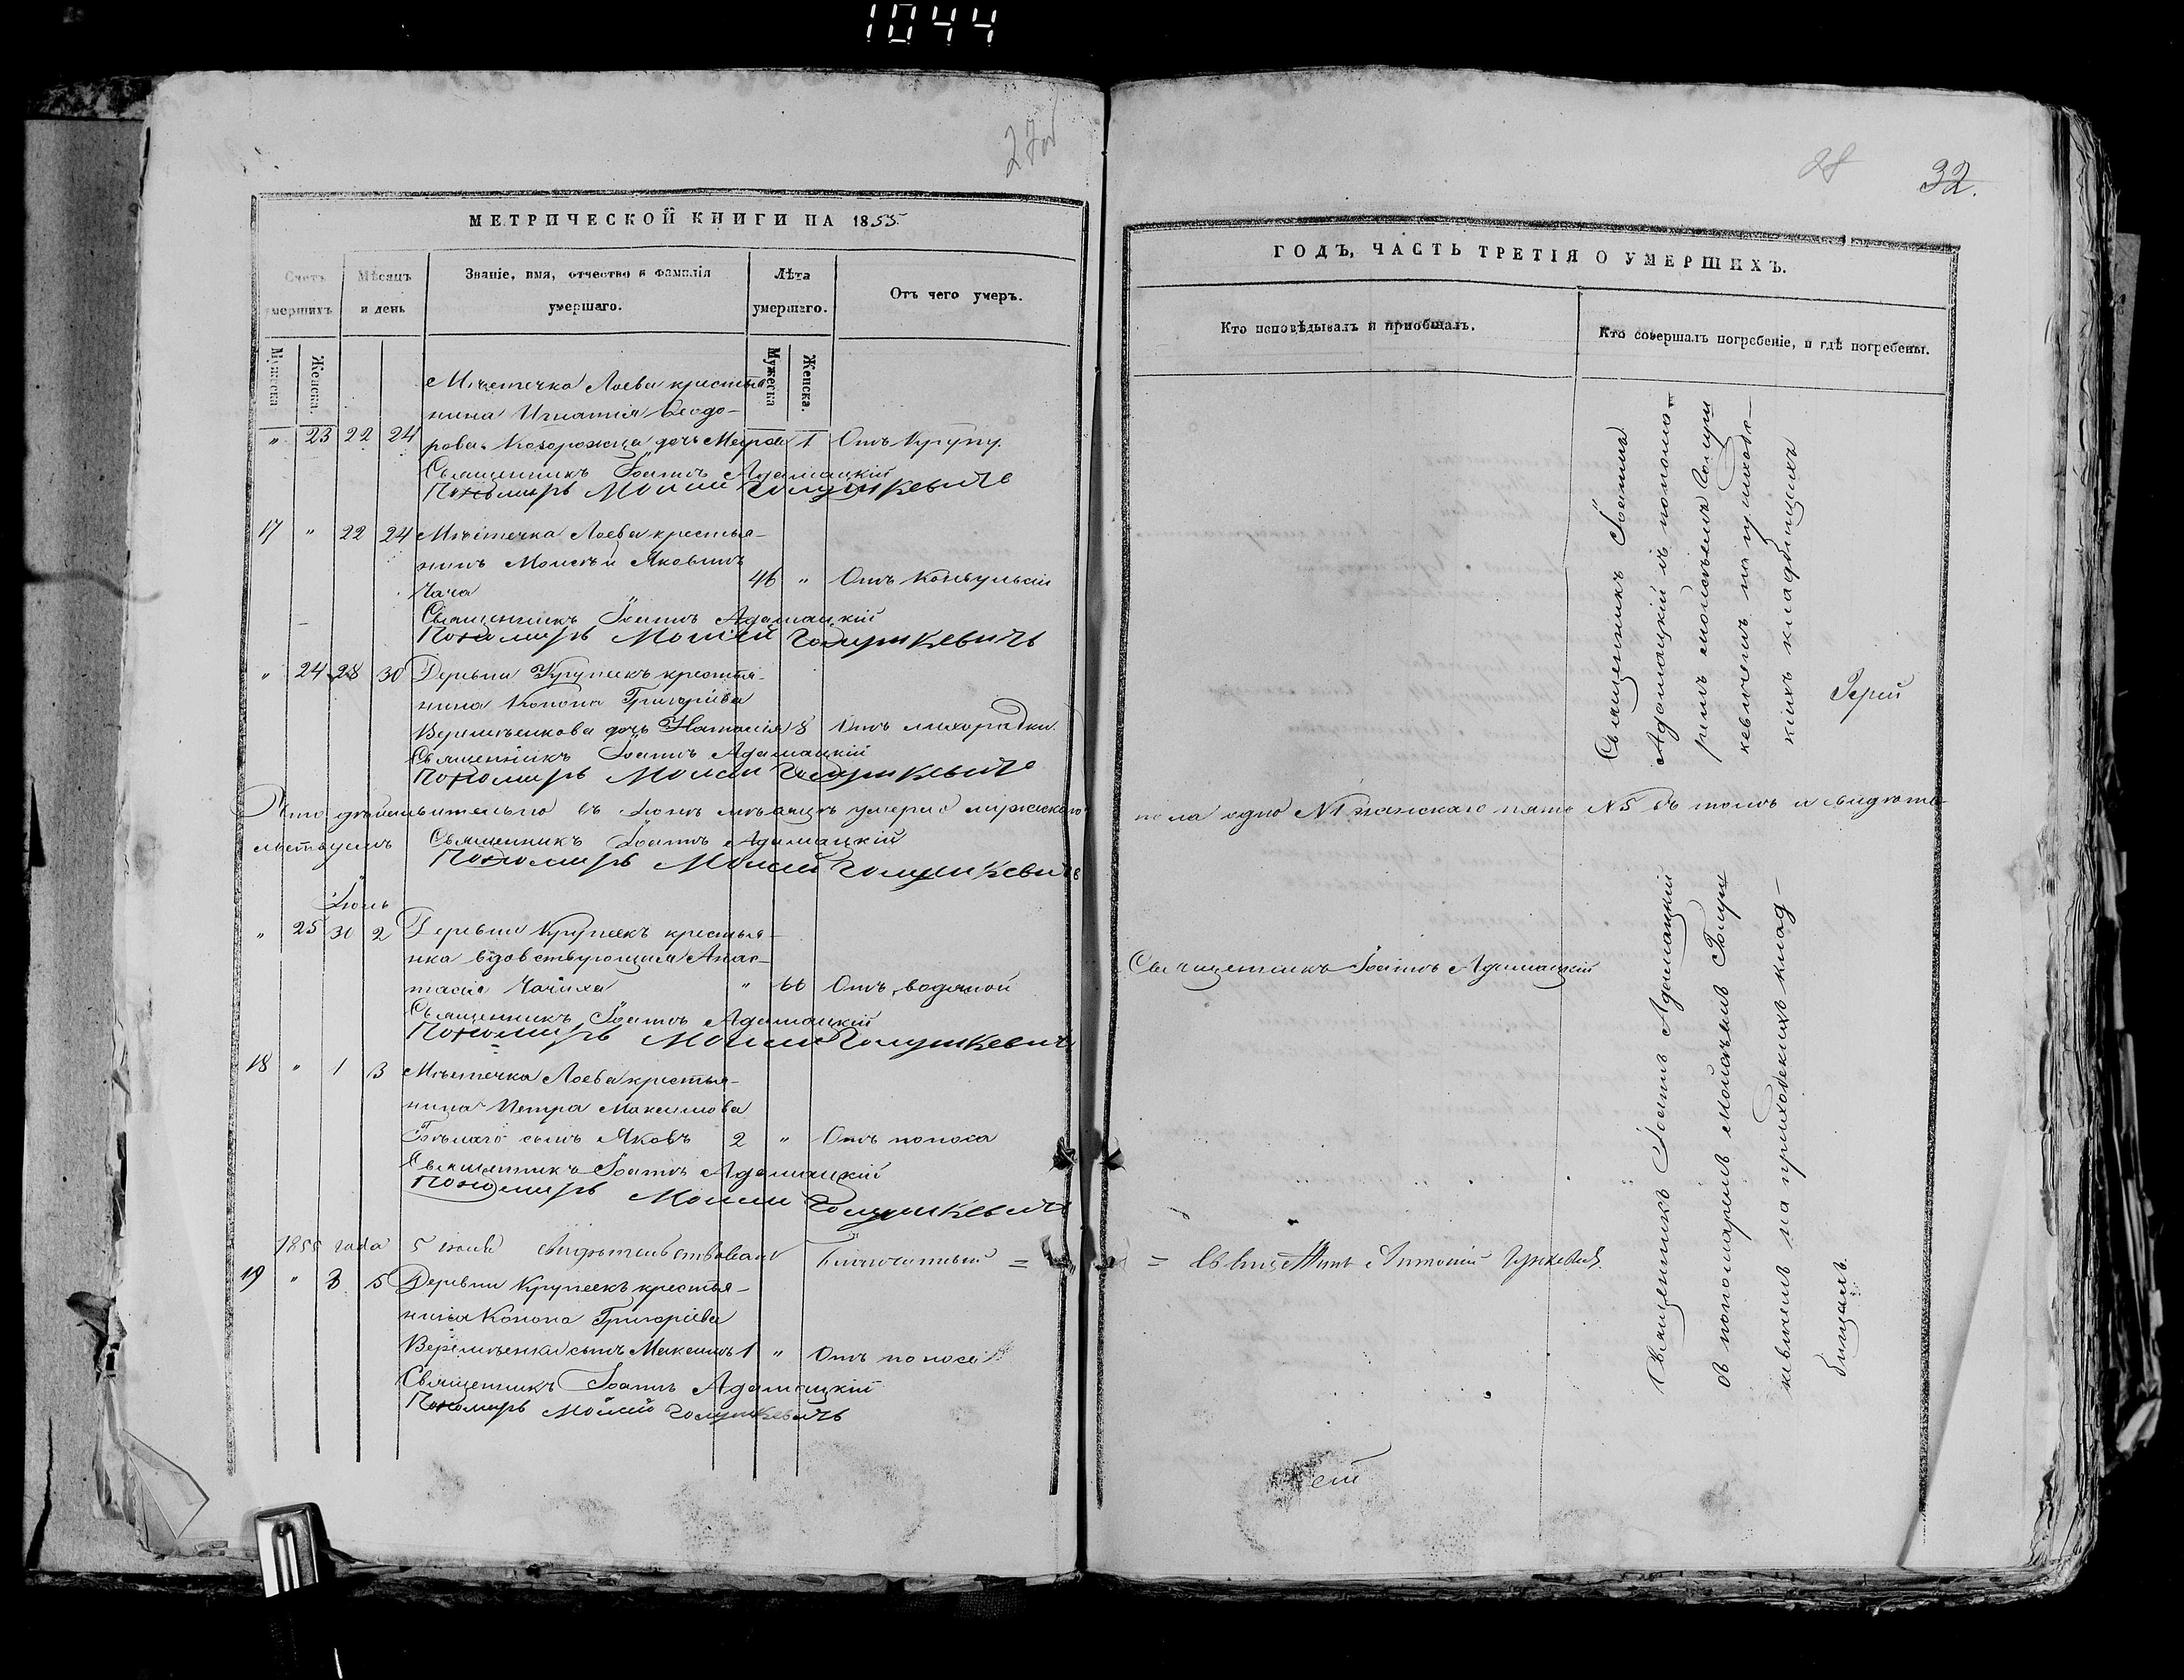 1044
27об
МЕТРИЧЕСКОЙ КНИГИ НА 1855
Счетъ умершихъ
Мѣсяцъ и день
Званіе, имя, отчество и фамилія умершаго.
Лѣта умершаго.
Отъ чего умеръ.
Мужеска
Женска.
Мужеска
Женска.
Мѣстечка Лоева крестья
нина Игнатія Ѳеодо-
" 23 22 24 рова дочь 1 Отъ
Священникъ Іоаннъ Адамацкій
Пономарь Моисей Голушкевичъ
17 " 22 24 Мѣстечка Лоева крестья-
нинъ Моисей Яковлевъ
Чача 46 " Отъ Конвульсіи
Священникъ Іоаннъ Адамацкій
Пономарь Моисей Голушкевичъ
" 24 28 30 Деревни Крупеекъ крестья-
нина Конона Григоріева
Веремѣенкова дочь Наталія 8 Отъ лихорадки.
Священникъ Іоаннъ Адамацкій
Пономарь Моисей Голушкевичъ
Что дѣйствительно въ Іюнѣ мѣсяцѣ умерло мужскаго
льствуемъ Священникъ Іоаннъ Адамацкій
Пономарь Моисей Голушкевичъ
Іюль
" 25 30 2 Деревни Крупеекъ крестья-
нка вдовствующая Анас-
тасія Чачиха " 66 Отъ водяной
Священникъ Іоаннъ Адамацкій
Пономарь Моисей Голушкевичъ
18 " 1 3 Мѣстечка Лоева крестья-
нина Петра Максимова
Бѣлаго сынъ Яковъ 2 " Отъ поноса
Священникъ Іоаннъ Адамацкій
Пономарь Моисей Голушкевичъ
1855 года 5 іюля свидѣтельствовалъ Благочинный =
19 " 3 5 Деревни Крупеекъ крестья-
нина Конона Григоріева
Веремѣенка сынъ Максимъ 1 " Отъ поноса
Священникъ Іоаннъ Адамацкій
Пономарь Моисей Голушкевичъ
28 32.
ГОДЪ, ЧАСТЬ ТРЕТІЯ О УМЕРШИХЪ.
Кто исповѣдывалъ и пріобщалъ.
Кто совершалъ погребеніе, и гдѣ погребены.
Священникъ Іоаннъ
Адамацкій съ понома-
ремъ Моисеемъ Голуш
кевичемъ на приходс-
кихъ кладбищахъ
Іерей
пола одно №1 женскаго пять №5 въ томъ и свидѣте-
Священникъ Іоаннъ Адамацкій
Священникъ Іоаннъ Адамацкій
съ пономаремъ Моисѣемъ Голуш
кевичемъ на приходскихъ клад-
бищахъ.
= Антоній